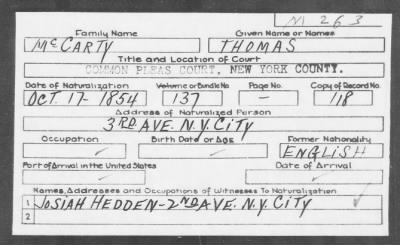 M 263
Family Name Given Name or Names
McCARTY THOMAS
Title and Location of Court
COMMON PLEAS COURT, NEW YORK COUNTY.
Date of Naturalization Volume or Bundle No Page No Copy of Record No
OCT. 17- 1854 137 - 118
Address of Naturalized Person
3RD AVE. N.Y. CITY
Occupation Birth Date or Age Former Nationality
ENGLISH
Port of Arrival in the United States Date of Arrival
Names, Addresses and Occupations of Witnesses To Naturalization
1 JOSIAH HEDDEN-2ND AVE. N.Y. CITY
2